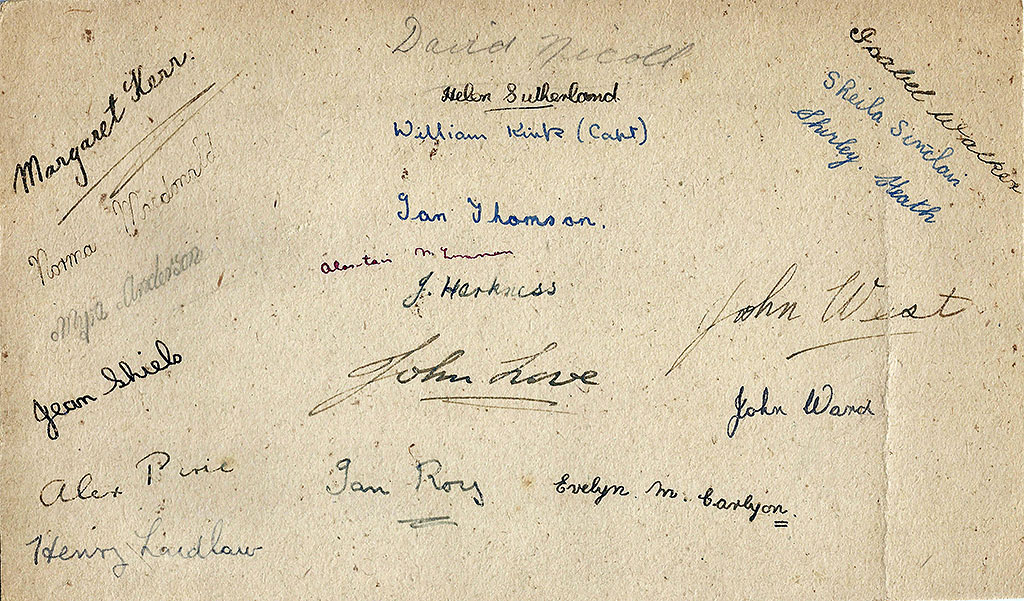 David Nicoll
Helen Sutherland
William Kirk (Capt)
Ian Thomson.
J. Harkness
John Love
Ian Roy
Evelyn. M. Carlyon.
Margaret Kerr.
Norma
Myra Anderson
Jean Shiels
Alex Pirie
Henry Laidlaw
Isabel Walker
Sheila Sinclair
Shirley. Heath
John West
John Ward